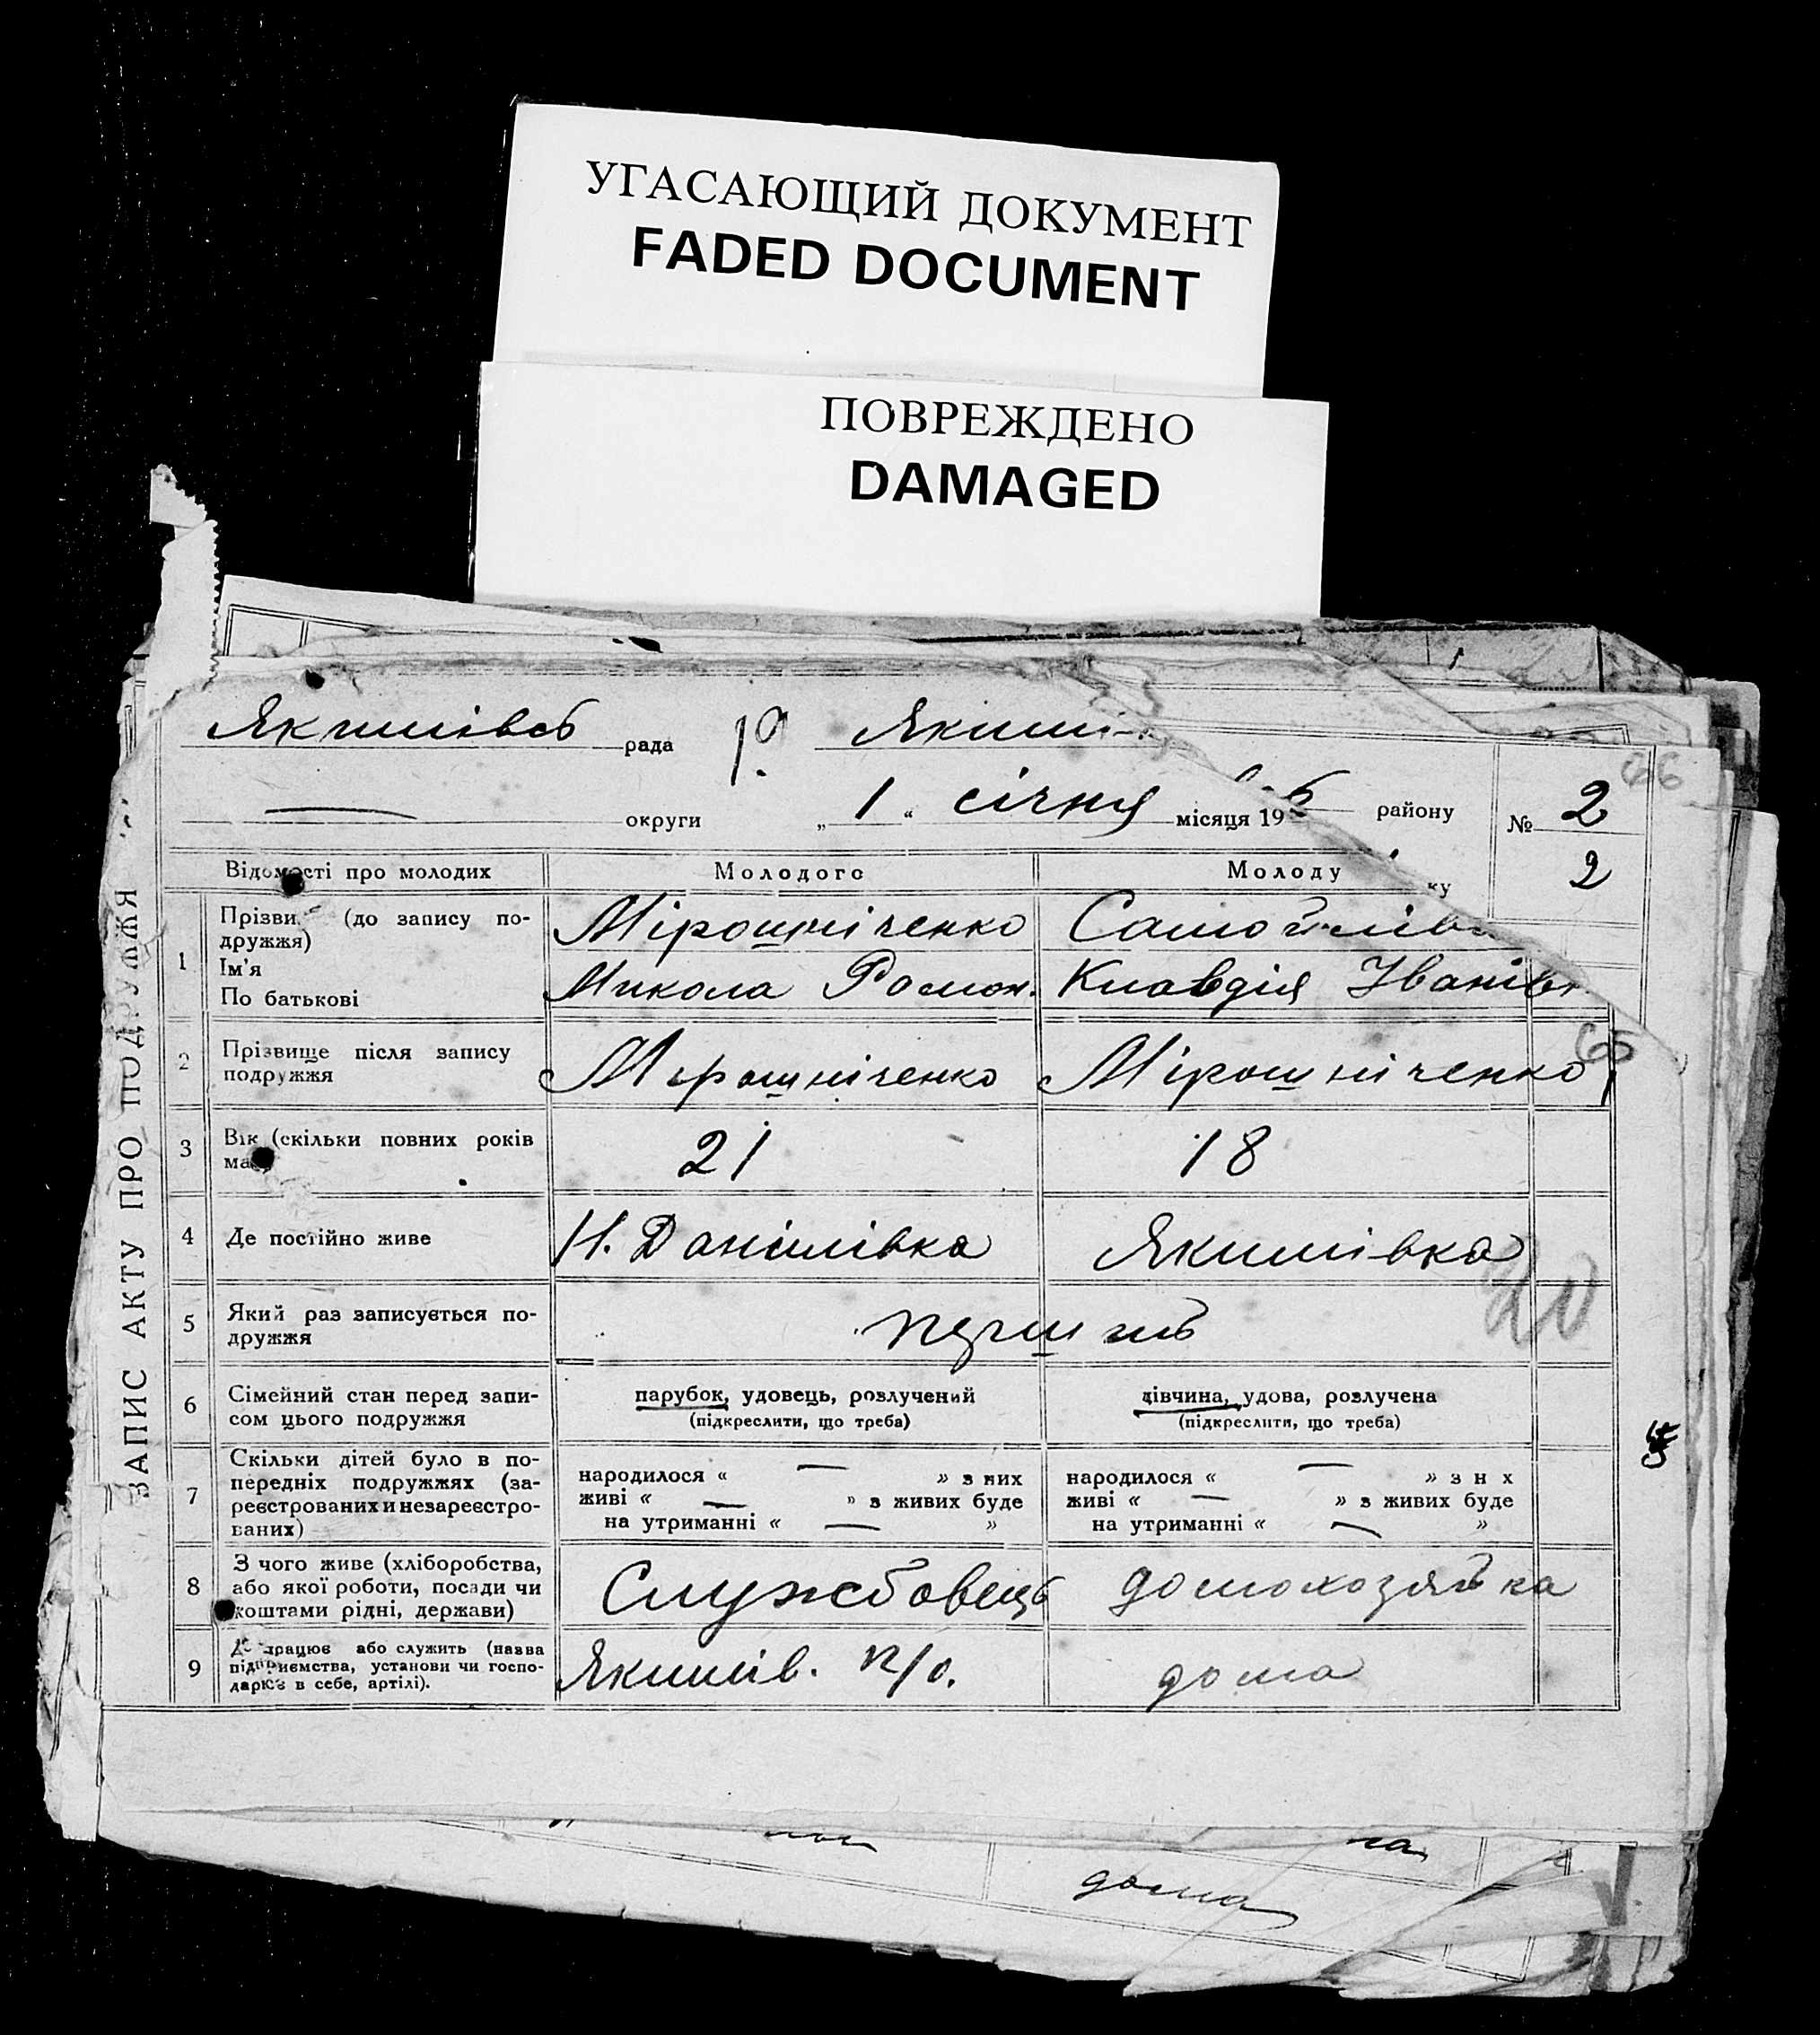 УГАСАЮЩИЙ ДОКУМЕНТ
FADED DOCUMENT
ПОВРЕЖДЕНО
DAMAGED
ЗАПИС АКТУ ПРО ПОДРУЖЖЯ
рада Якимі
округи „ 1 “ січня місяця 19 6 району № 2
2
66
Відомості про молодих Молодого Молоду ку
1 Прізви (до запису по-
дружжя)
Ім'я
По батькові
Мірошніченко
Микола Роман.
Самойлів
Клавдія Іванів
2 Прізвище після запису
подружжя
Мірошніченко Мірошніченко
3 Вік (скільки повних років
має)
21 18
4 Де постійно живе Н. Данілівка Якимівка
20
5 Який раз записується по-
дружжя
6 Сімейний стан перед запи-
сом цього подружжя
парубок, удовець, розлучений
(підкреслити, що треба)
дівчина, удова, розлучена
(підкреслити, що треба)
7 Скільки дітей було в по-
передніх подружжях (за-
реєстрованих и незареєстро-
ваних)
народилося « — » з них
живі « — » з живих буде
на утриманні « — »
народилося « — » з н х
живі « — » з живих буде
на утриманні « — »
8 З чого живе (хліборобства,
або якої роботи, посади чи
коштами рідні, держави)
Службовець домохозяйка
9 працює або служить (назва
підприємства, установи чи госпо-
дарює в себе, артілі).
Якимів. п/о. дома
дома